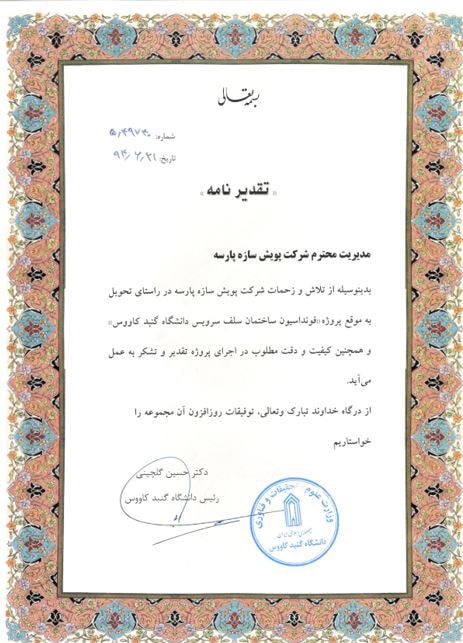 بسمه تعالی
شماره: ۵٫۴۹۷۴۰
تاریخ: ۹۴٫۲٫۲۱
« تقدیر نامه »
مدیریت محترم شرکت پویش سازه پارسه
بدینوسیله از تلاش و زحمات شرکت پویش سازه پارسه در راستای تحویل
به موقع پروژه «فونداسیون ساختمان سلف سرویس دانشگاه گنبد کاووس»
و همچنین کیفیت و دقت مطلوب در اجرای پروژه تقدیر و تشکر به عمل
می‌آید.
از درگاه خداوند تبارک وتعالی، توفیقات روزافزون آن مجموعه را
خواستاریم
دکتر حسین گلچینی
رئیس دانشگاه گنبد کاووس
وزارت علوم تحقیقات و فناوری
جمهوری اسلامی ایران
دانشگاه گنبد کاووس